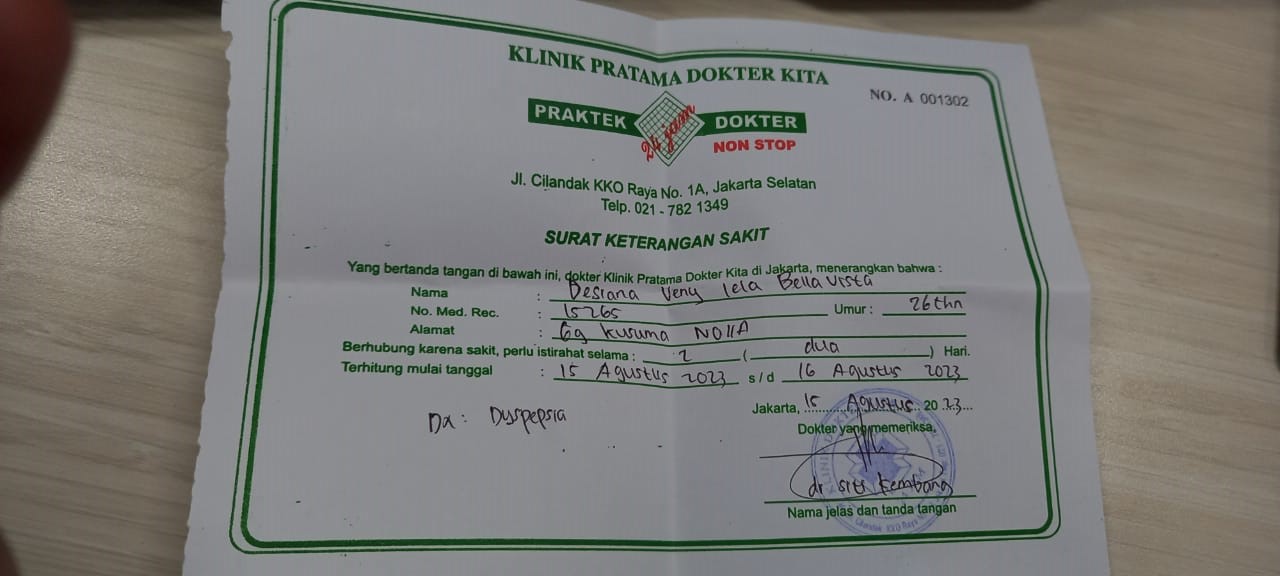 KLINIK PRATAMA DOKTER KITA
NO. A 001302
PRAKTEK 24 jam DOKTER
NON STOP
Jl. Cilandak KKO Raya No. 1A, Jakarta Selatan
Telp. 021 - 782 1349
SURAT KETERANGAN SAKIT
Yang bertanda tangan di bawah ini, dokter Klinik Pratama Dokter Kita di Jakarta, menerangkan bahwa :
Nama : Desiana Veny lela Bella Vista
No. Med. Rec. : 15265 Umur : 26 thn
Alamat : Gg Kusuma NO 11A
Berhubung karena sakit, perlu istirahat selama : 2 ( dua ) Hari.
Terhitung mulai tanggal : 15 Agustus 2023 s/d 16 Agustus 2023
Jakarta, 15 Agustus 2023
Dx : Dyspepsia
Dokter yang memeriksa,
dr Siti Kembang
Nama jelas dan tanda tangan